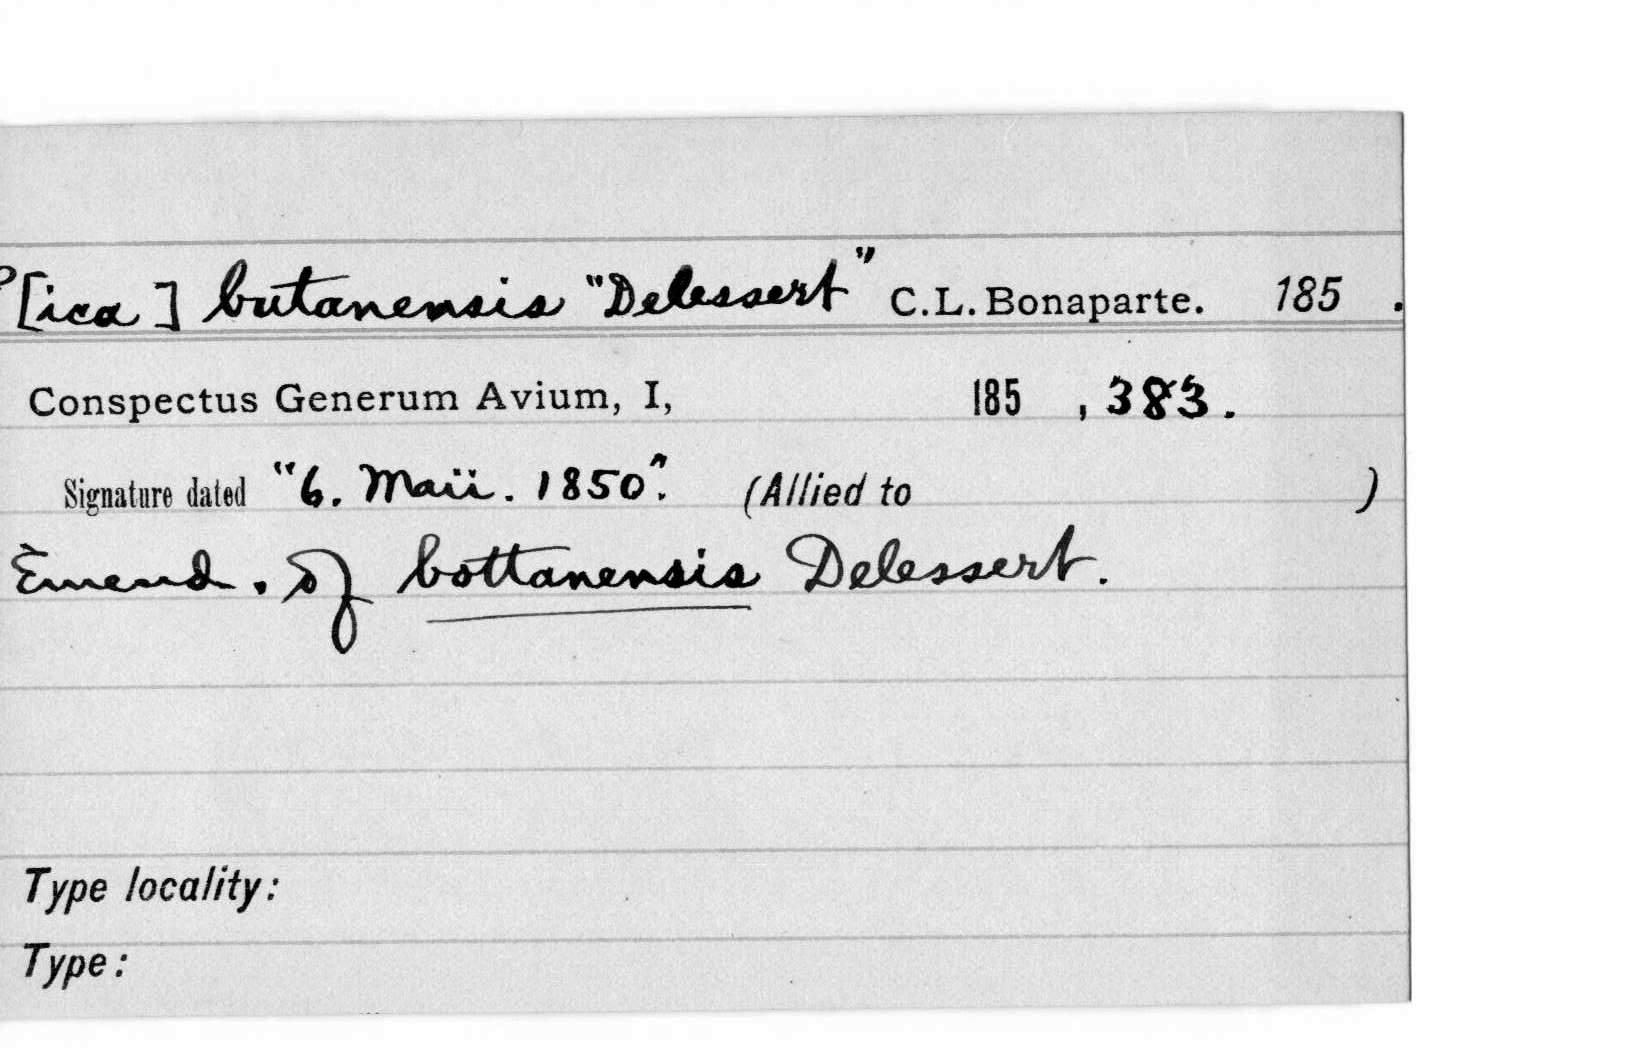 P[ica] butanensis "Delessert" C.L. Bonaparte. 185 .
Conspectus Generum Avium, I, 185 , 383.
Signature dated "6. Maii. 1850". (Allied to )
Emend. of bottanensis Delessert.
Type locality:
Type: